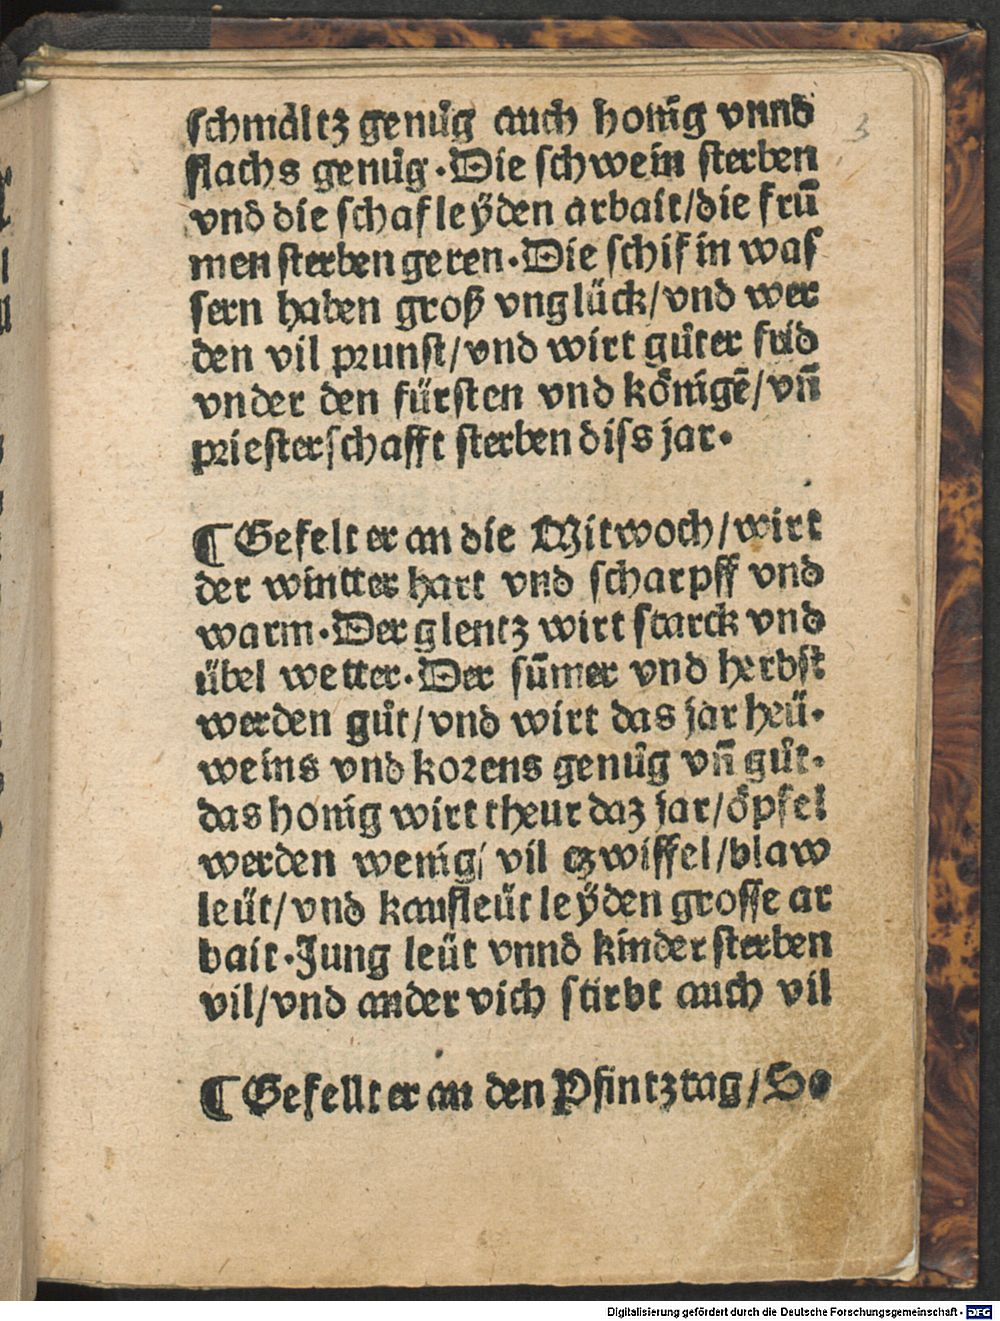 schmaltz genůg auch honig vnnd
flachs genůg. Die schwein sterben
vnd die schaf leÿden arbait/die frū
men sterben geren. Die schif in was
sern haben groß vnglück/vnd wer
den vil prunst/vnd wirt gůter frid
vnder den fürsten vnd kônigē/vñ
priesterschafft sterben diss jar.
¶ Gefelt er an die Mitwoch/wirt
der wintter hart vnd scharpff vnd
warm. Der glentz wirt starck vnd
übel wetter. Der sūmer vnd herbst
werden gůt/vnd wirt das jar heü.
weins vnd korens genůg vñ gůt.
das honig wirt theur daz jar/ôpfel
werden wenig/ vil zwiffel/blaw
leüt/vnd kaufleüt leÿden grosse ar
bait. Jung leüt vnnd kinder sterben
vil/vnd ander vich stirbt auch vil
¶ Gefellt er an den Pfintztag/So
3
Digitalisierung gefördert durch die Deutsche Forschungsgemeinschaft - DFG